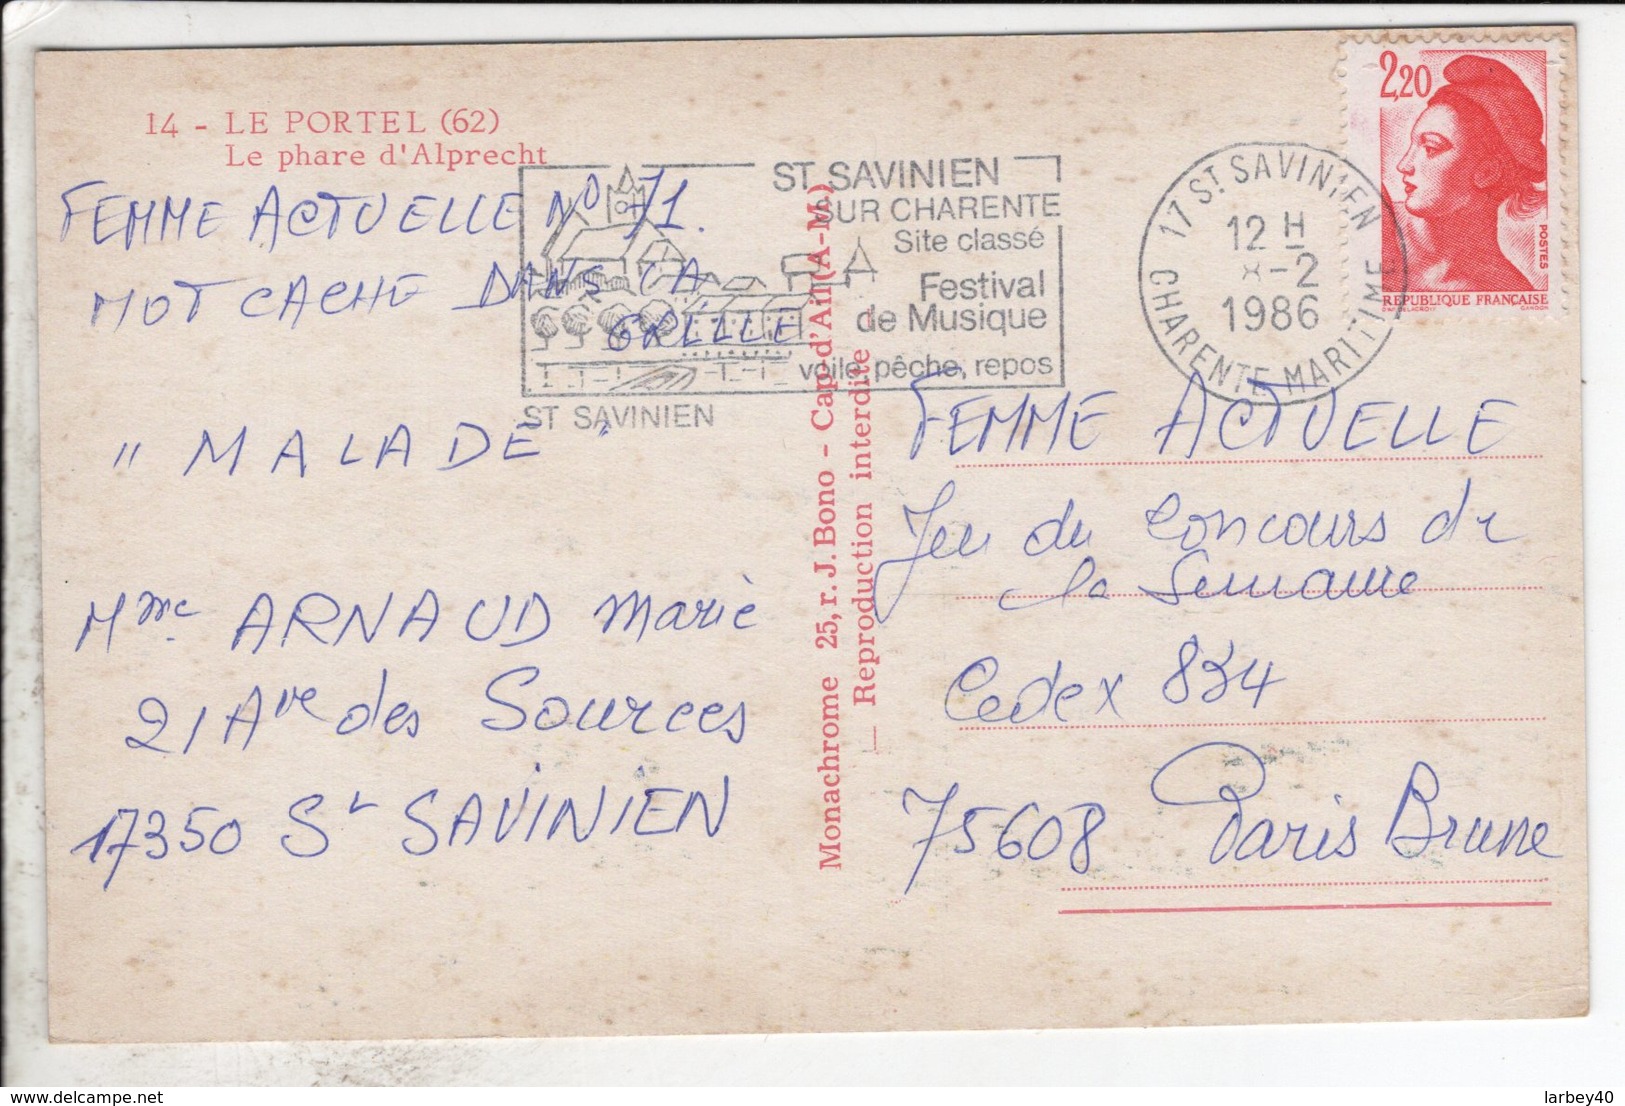 14 - LE PORTEL (62)
Le phare d'Alprecht
FEMME ACTUELLE No 71.
MOT CACHE DANS LA
GRILLE
" MALADE "
Mme ARNAUD Marie
21 Ave des Sources
17350 St SAVINIEN
ST SAVINIEN
SUR CHARENTE
Site classé
Festival
de Musique
voile, pêche, repos
ST SAVINIEN
Monachrome 25, r. J. Bono - Cap-d'Ail (A-M)
— Reproduction interdite —
17 ST SAVINIEN
12 H
-2
1986
CHARENTE MARITIME
2,20
POSTES
REPUBLIQUE FRANÇAISE
FEMME ACTUELLE
Jeu du concours de
la Semaine
Cedex 834
75608 Paris Brune
larbey40
delcampe.net